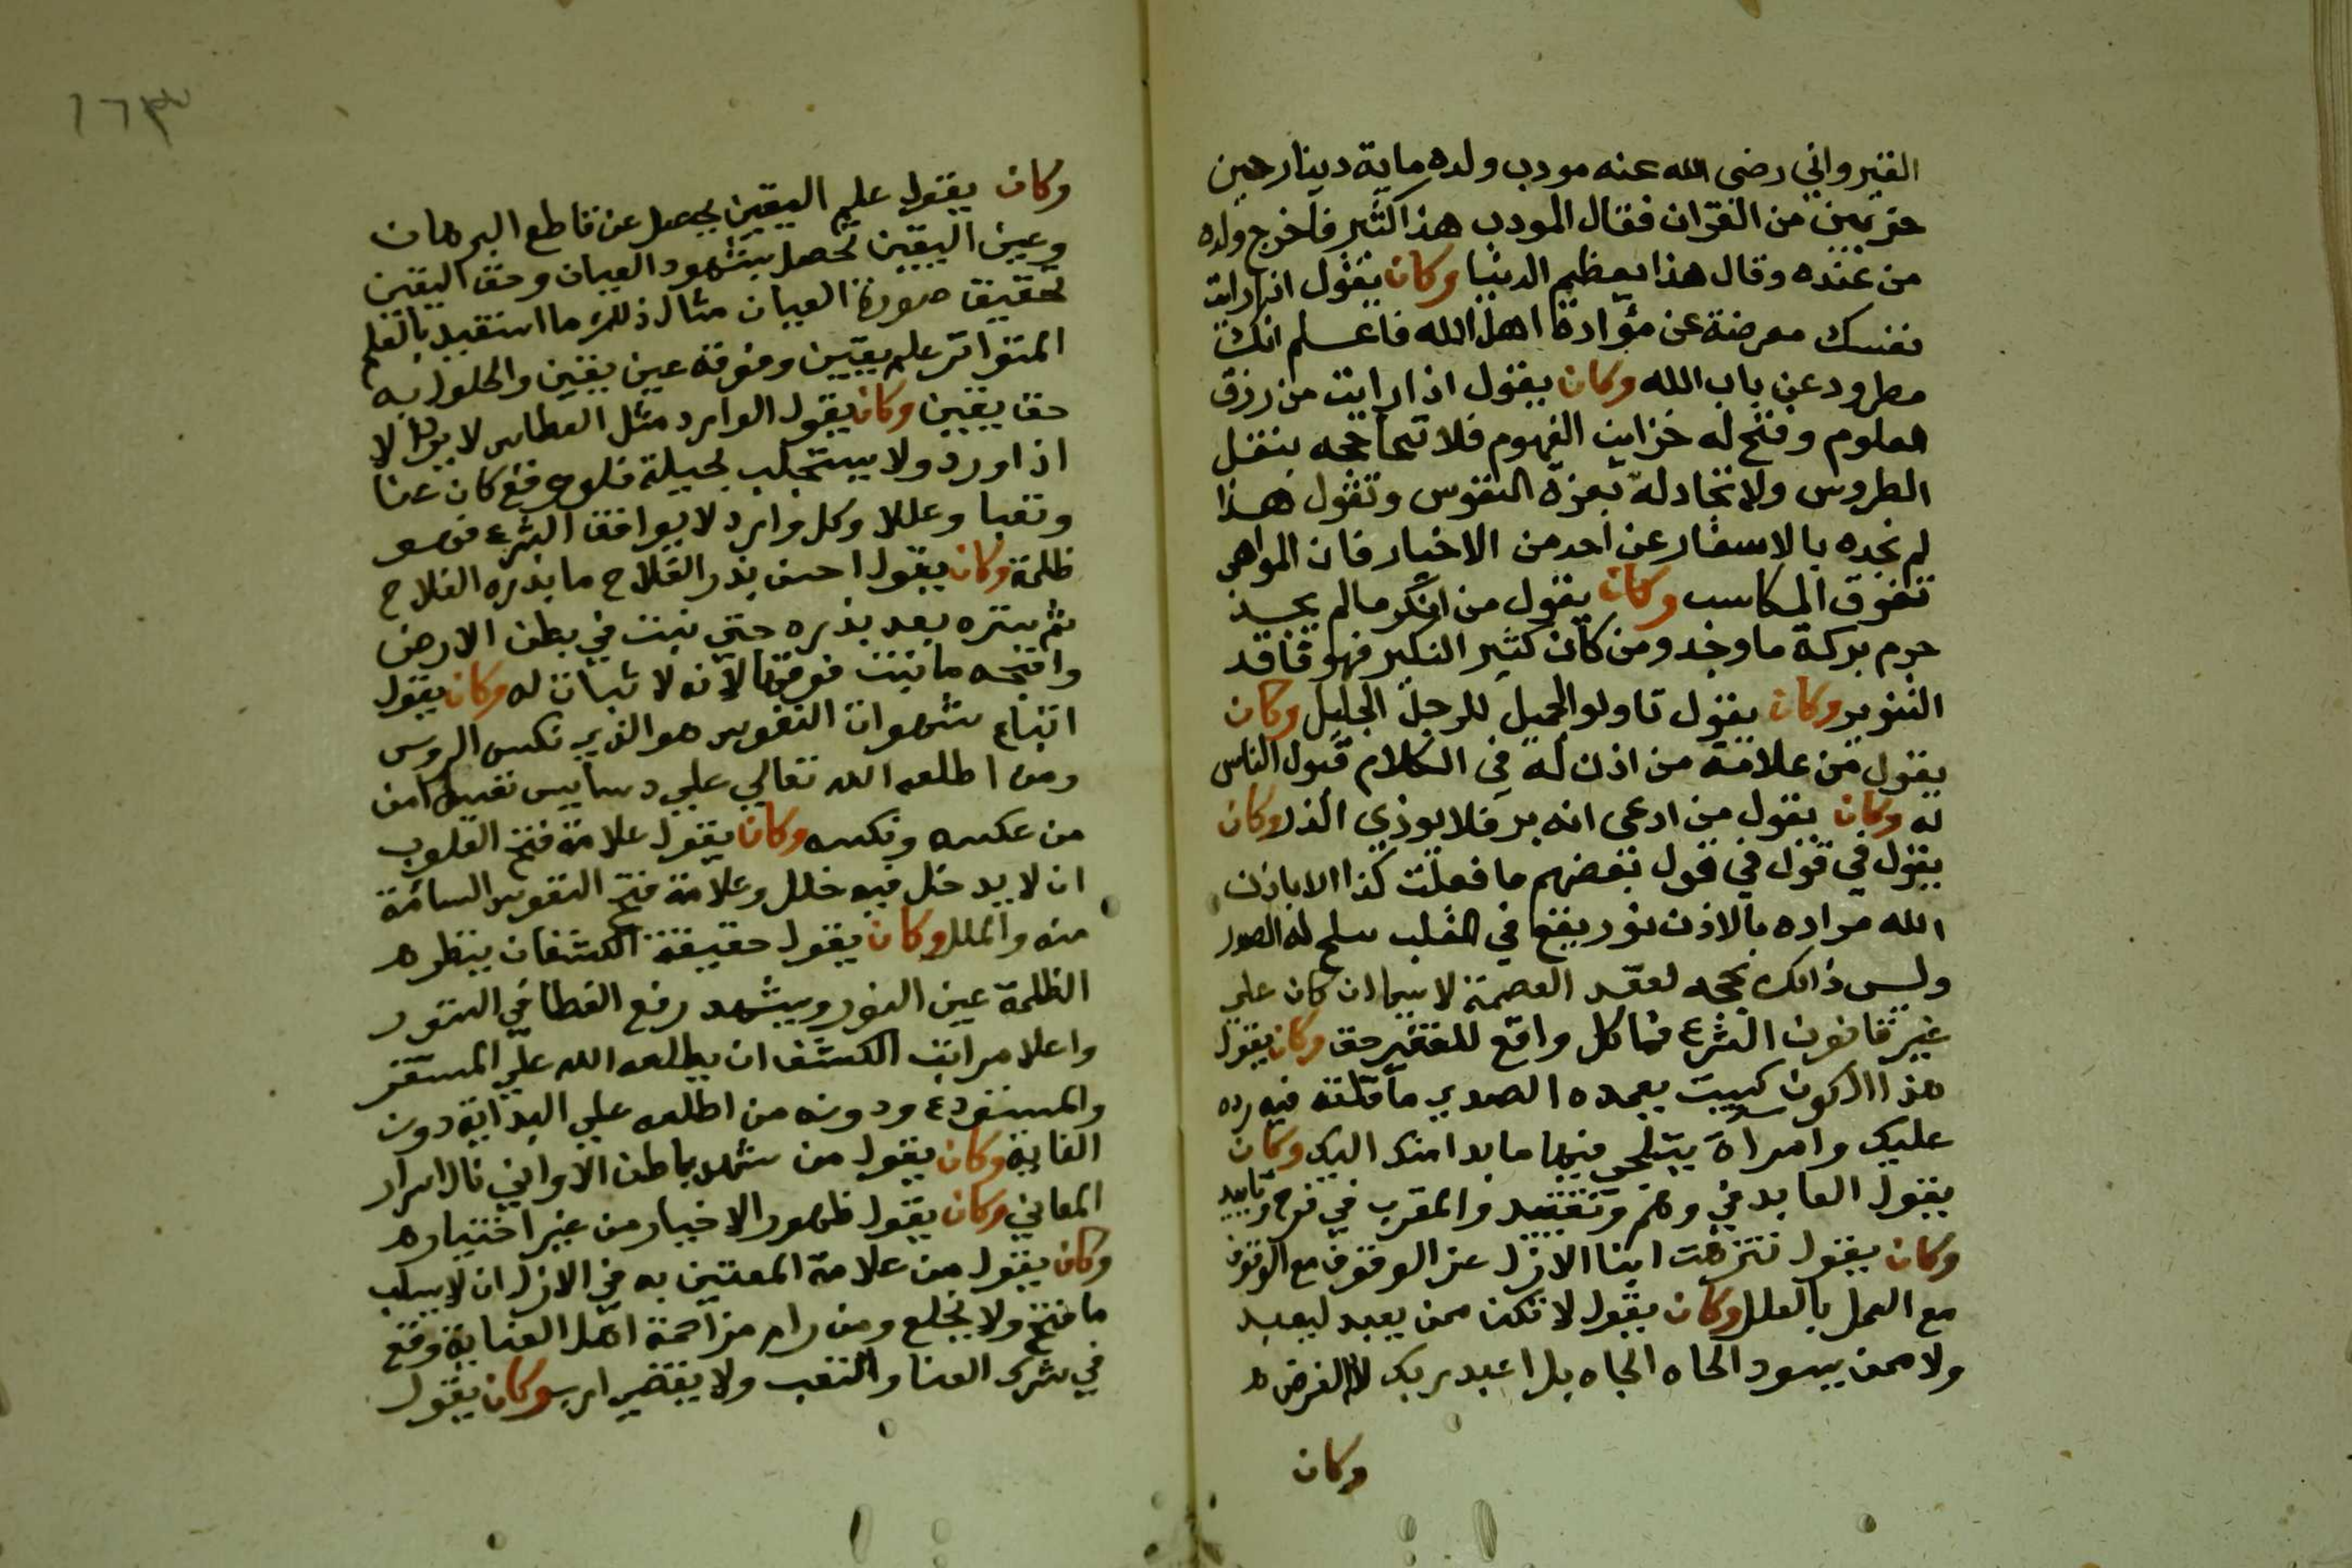 القيرواني رضى الله عنه مودب ولده ماية دينار حين
حزبين من القران فقال المودب هذا كثير فاخرج ولده
من عنده وقال هذا يعظم الدنيا وكان يقول اذا رات
نفسك معرضة عن مؤادة اهل الله فاعلم انك
مطرود عن باب الله وكان يقول اذا رايت من رزق
العلوم وفتح له خزاين الفهوم فلا تحاججه بنقل
الطروس ولا تجادله بعزة النفوس وتقول هذا
لم نجده بالاسفار عن احد من الاخيار فان المواهب
تفوق المكاسب وكان يقول من انكر مالم يجد
حرم بركة ما وجد ومن كان كثير النكير فهو فاقد
التنوير وكان يقول تاولو الجميل للرجل الجليل وكان
يقول من علامة من اذن له في الكلام قبول الناس
له وكان يقول من ادعى انه بر فلا يوذي الذر وكان
يقول في قول في قول بعضهم ما فعلت كذا الا باذن
الله مراده بالاذن نور يقع في القلب له الصدر
وليس ذالك بحجه لعقد العصمة لا سيما ان كان علي
غير قانون الشرع فما كل واقع للفقير حق وكان يقول
هذا الكون كبيت الصدي ما قلته فيه رده
عليك وامراة يتجلي فيها ما بدا منك اليك وكان
يقول العابد في وهم وتقييد والمقرب في فرح وتاييد
وكان يقول تنزهت ابنا الازل عن الوقوف مع الوقوف
مع العمل بالعلل وكان يقول لا تكن ممن يعبد ليعبد
ولا ممن يسود الجاه الجاه بل اعبد ربك
وكان
١٦٣
وكان يقول علم اليقين يحصل عن قاطع البرهان
وعين اليقين تحصل بشهود العيان وحق اليقين
تحقيق صورة العيان مثال ذلك ما استفيد بالعلم
المتواتر علم يقين وفوقه عين يقين والحلول به
حق يقين وكان يقول الوارد مثل العطاس لا يرد لا
اذا ورد ولا يستجلب بحيلة فلو وقع كان عنا
وتعبا وعللا وكل وارد لا يوافق الشرع فهو
ظلمة وكان يقول احسن بذر الفلاح ما بذره الفلاح
ثم ستره بعد بذره حتي نبت في بطن الارض
واقبحه ما نبت فوقها لانه لا ثبات له وكان يقول
اتباع شهوات النفوس هو الذي نكس الروس
ومن اطلعه الله تعالي علي دسايس نفسه امن
من عكسه ونكسه وكان يقول علامة فتح القلوب
ان لا يدخل فيه خلل وعلامة فتح النفوس السائمة
منه والملل وكان يقول حقيقة الكشف ان ينظر هـ
الظلمة عين النور ويشهد رفع الغطا في الستور
واعلا مراتب الكشف ان يطلعه الله علي المستقر
والمستودع ودونه من اطلعه علي البداية دون
الغاية وكان يقول من شهد باطن الاواني نال اسرار
المعاني وكان يقول ظهور الاخيار من غير اختيار هـ
وكان يقول من علامة المعتين به في الازل ان لا يسلب
ما فتح ولا يخلع ومن رام مزاحمة اهل العناية وقع
في شرك العنا والتعب ولا يقضي ارب وكان يقول